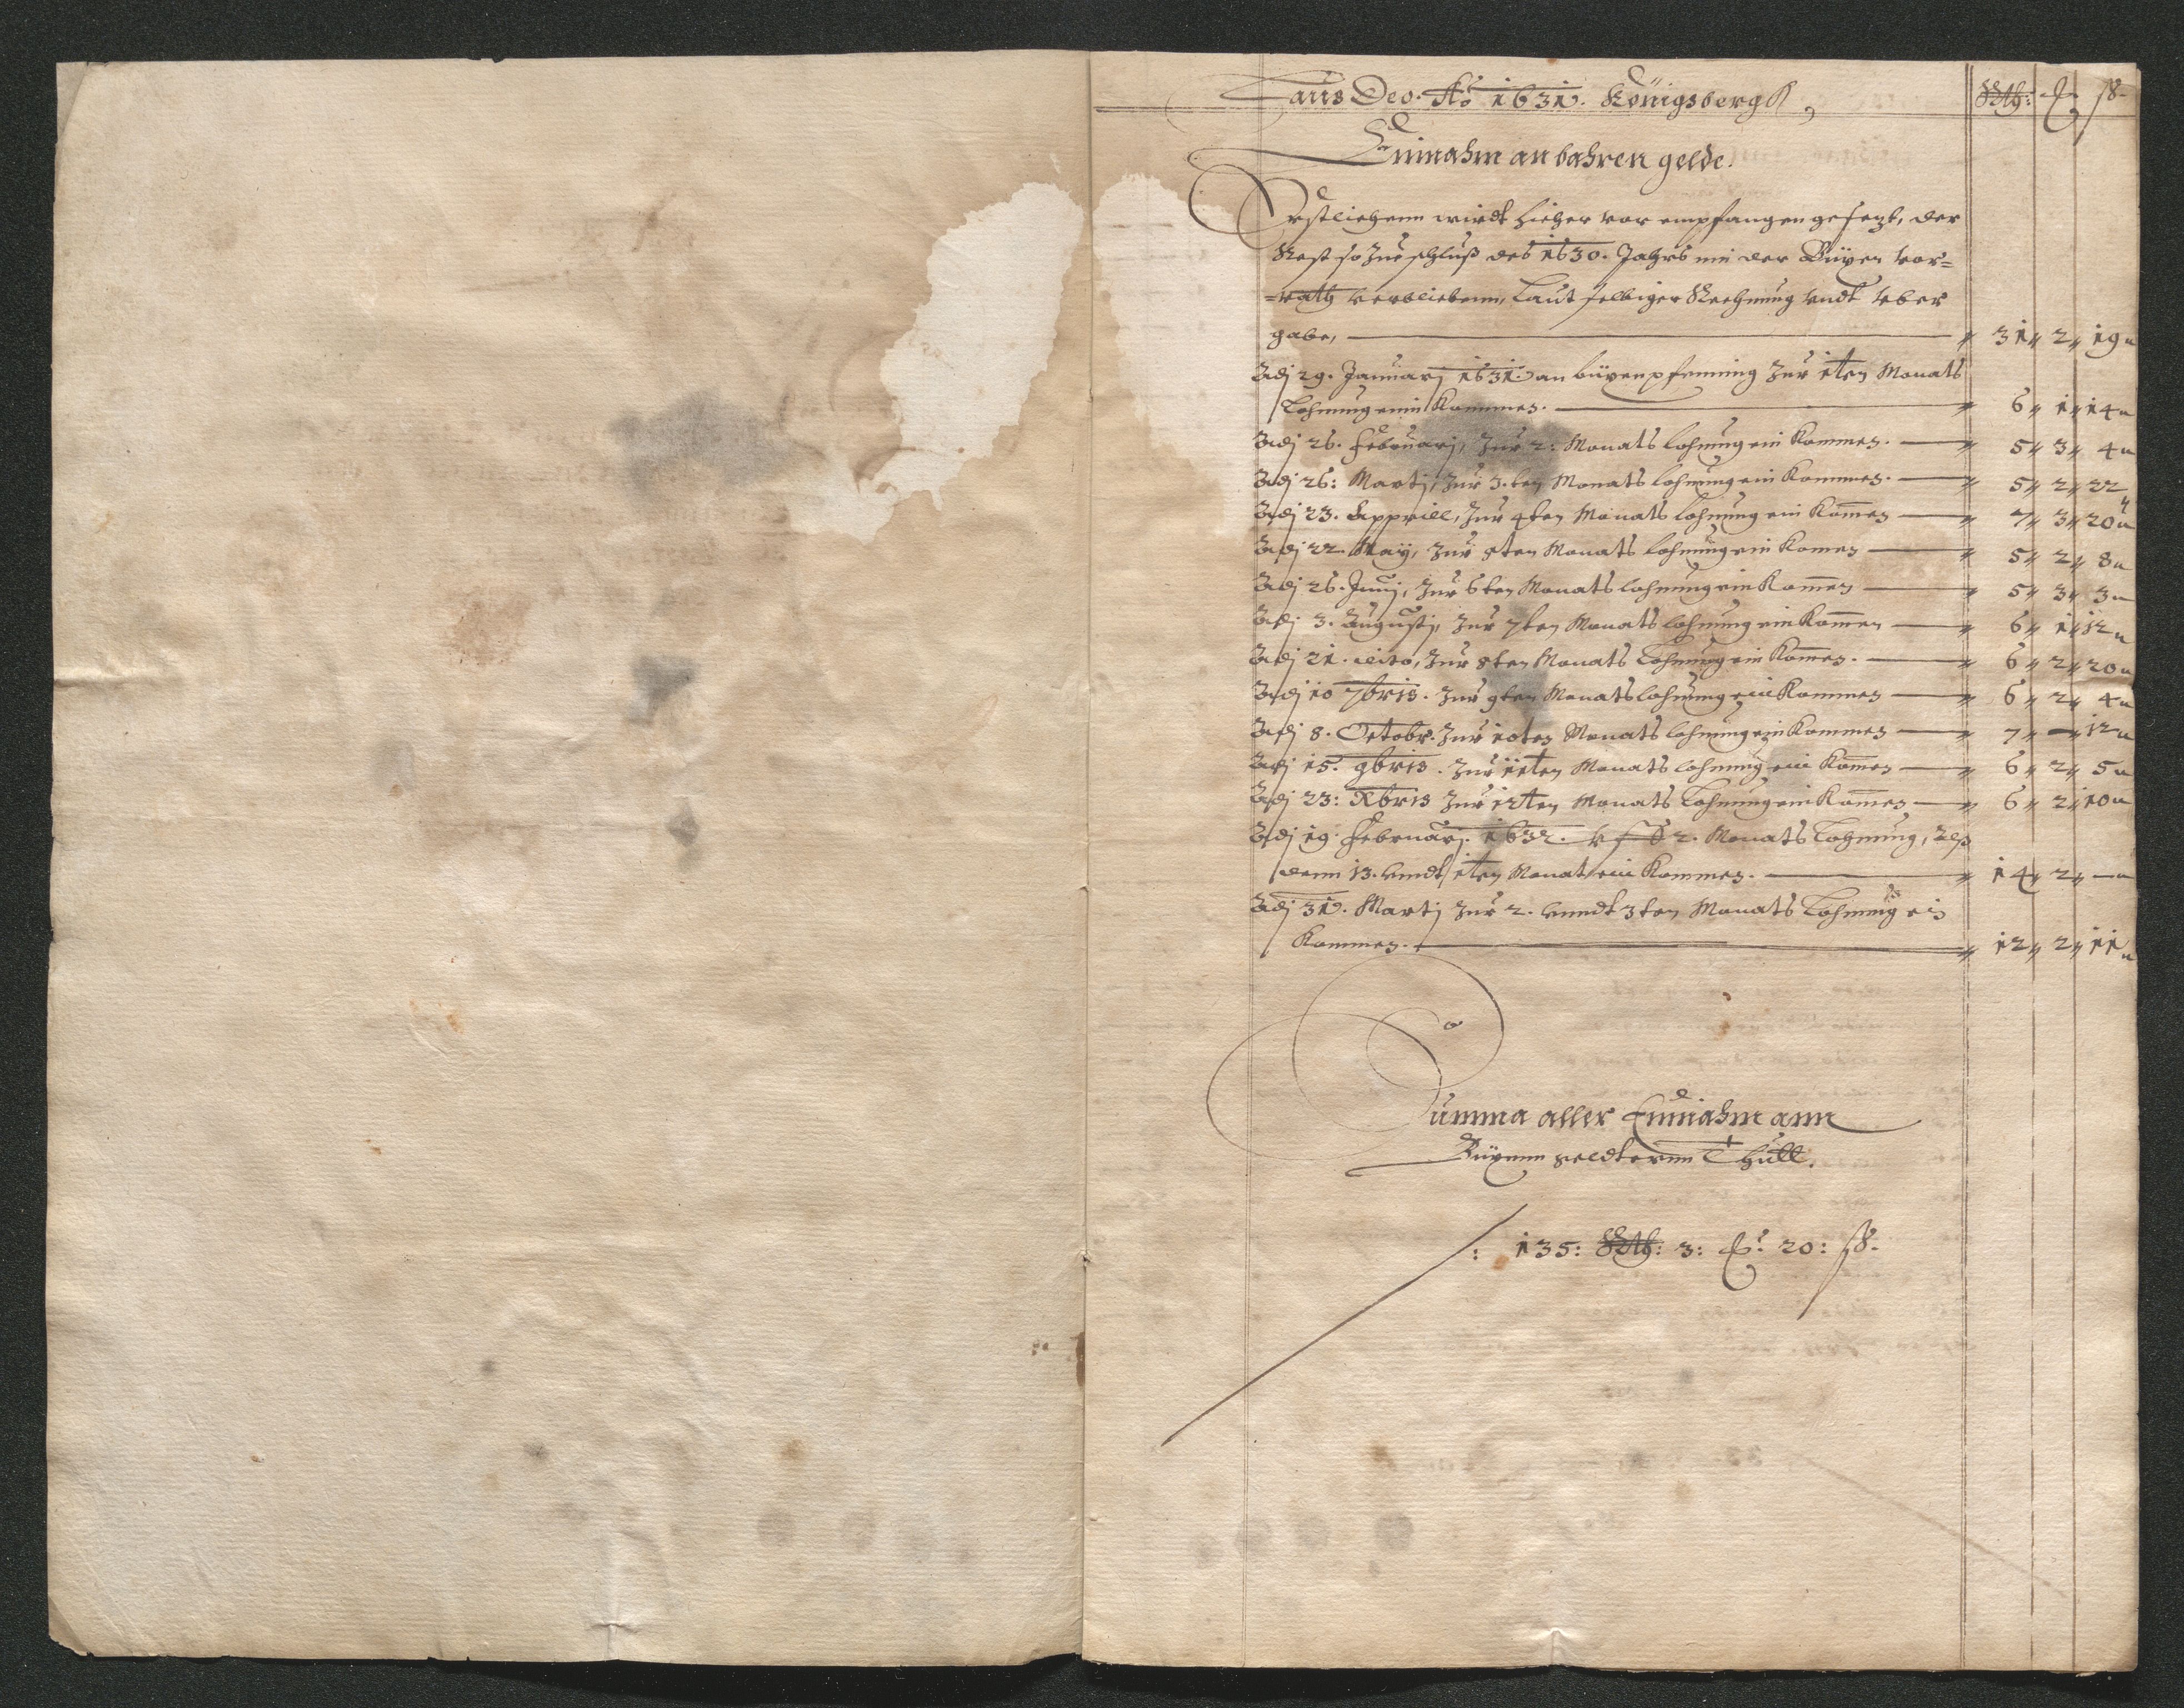 Laus Deo. Aō 1631. Königsbergk, Rth: ortt ß.
Einnahm an bahren gelde.
Erstlichenn wirdt hieher vor empfangen gesezt, der
Rest so zur schluß des 1630. Jahrs inn der Büxen vor=
=rath verbliebenn, Laut selbiger Rechnung vndt vber
gabe, 31 2 19
Adj 29. Januarj 1631. an büxenpfenning zur 1ten Monats
Lohnung einn Kommen. 6 1 14
Adj 26. Februarj, zur 2: Monats lohnung ein Kommen. 5 3 4
Adj 26: Martj, zur 3.ten Monats lohnung ein Kommen. 5 2 22
Adj 23. Appriell, zur 4ten Monats lohnung ein Kom̄en 7 3 20
Adj 22. May, zur 5ten Monats lohnung ein Komen 5 2 8
Adj 26. Junij, zur 6ten Monats lohnung ein Kom̄en 5 3 3
Adj 3. Augustj, zur 7ten Monats lohnung ein Kom̄en 6 1 12
Adj 21. dito, zur 8ten Monats Lohnung ein Kom̄en. 6 2 20
Adj 10 7bris. zur 9ten Monats lohnung ein Kommen 6 2 4
Adj 8. Octobr. zur 10ten Monats lohnung ein Kommen 7 — 12
Adj 15. 9bris. zur 11ten Monats lohnung ein Kom̄en 6 2 5
Adj 23: Xbris zur 12ten Monats Lohnung ein Kom̄en 6 2 10
Adj 19. Februarj. 1632. 2. Monats Lohnung, alß
denn 13. vndt 1ten Monat ein Kommen. 14 2 —
Adj 31. Martj zur 2. vnndt 3ten Monats Lohnung ein
Kommen. 12 2 11
Summa aller Einnahm ann
Büxenn geldt
: 135: Rth: 3: ortt: 20: ß.